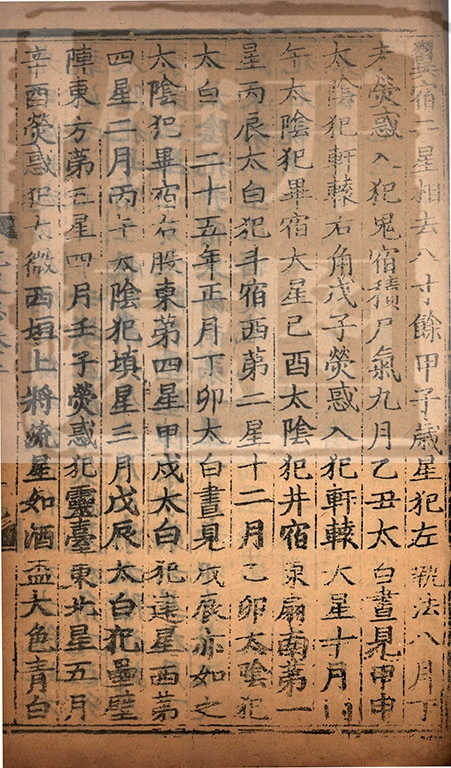 翼宿二星相去八寸餘甲子歲星犯左執法八月丁
未熒惑入犯鬼宿積尸氣九月乙丑太白晝見甲申
太陰犯軒轅右角戊子熒惑入犯軒轅大星十月
午太陰犯畢宿大星己酉太陰犯井宿東扇南第一
星丙辰太白犯斗宿西第二星十二月乙卯太陰犯
太白 二十五年正月丁卯太白晝見戊辰亦如之
太陰犯畢宿右股東第四星甲戌太白犯建星西第
四星二月丙午太陰犯填星三月戊辰太白犯壘壁
陣東方第五星四月壬子熒惑犯靈臺東北星五月
辛酉熒惑犯太微西垣上將流星如酒盃大色青白